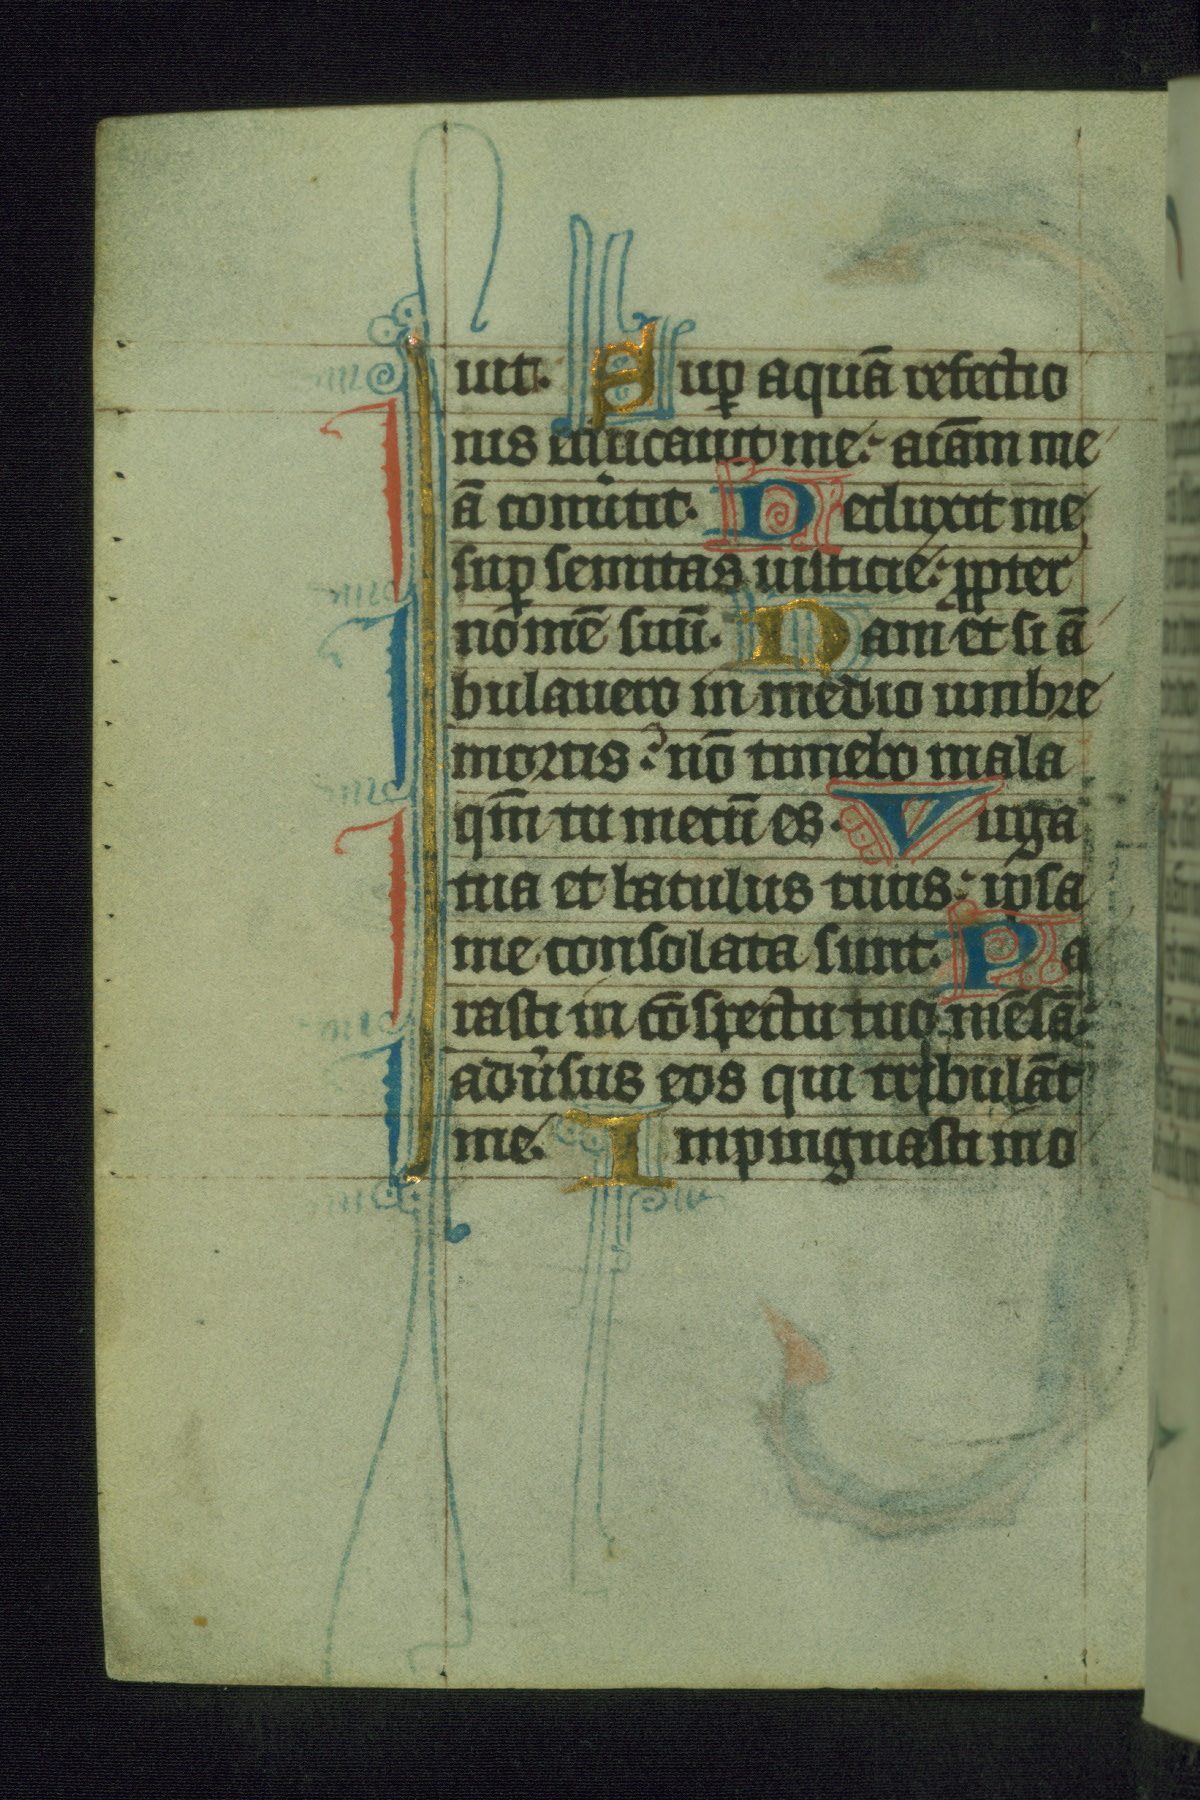 uit. Sup̱ aquā refectio
nis educauit me: aīam me
ā conũtit. Deduxit me
sup̱ semitas iusticie: ꝓpter
nomē suū. Nam et si ā
bulauero in medio umbre
mortis: nō timebo mala
qm̄ tu mecū es. Uirga
tua et baculus tuus: ipsa
me consolata sunt. Pa
rasti in cōspectu tuo mēsā:
adũsus eos qui tribulāt
me. Impinguasti in o